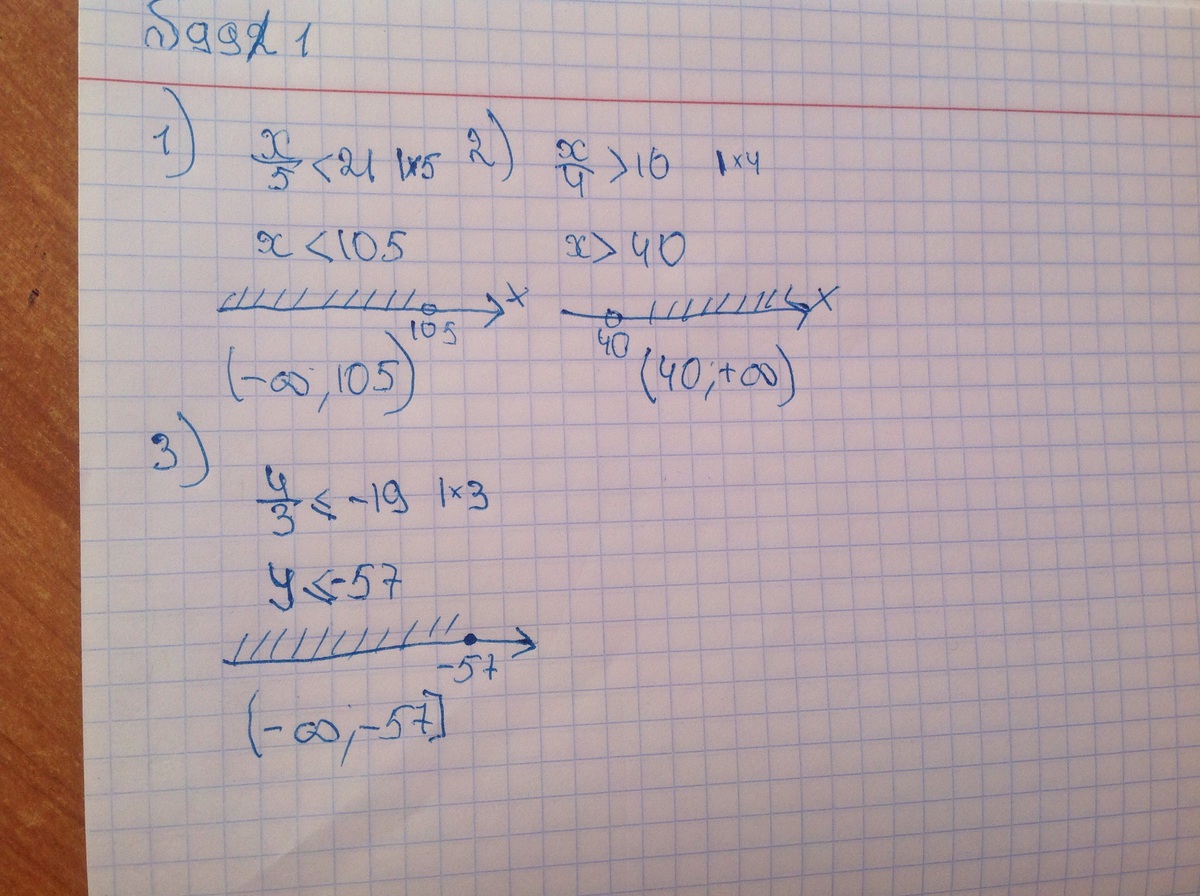 991
1) x/5 < 21 |×5
x < 105
x
105
(-∞; 105)
2) x/4 > 10 |×4
x > 40
x
40
(40; +∞)
3)
y/3 ≤ -19 |×3
y ≤ -57
-57
(-∞; -57]